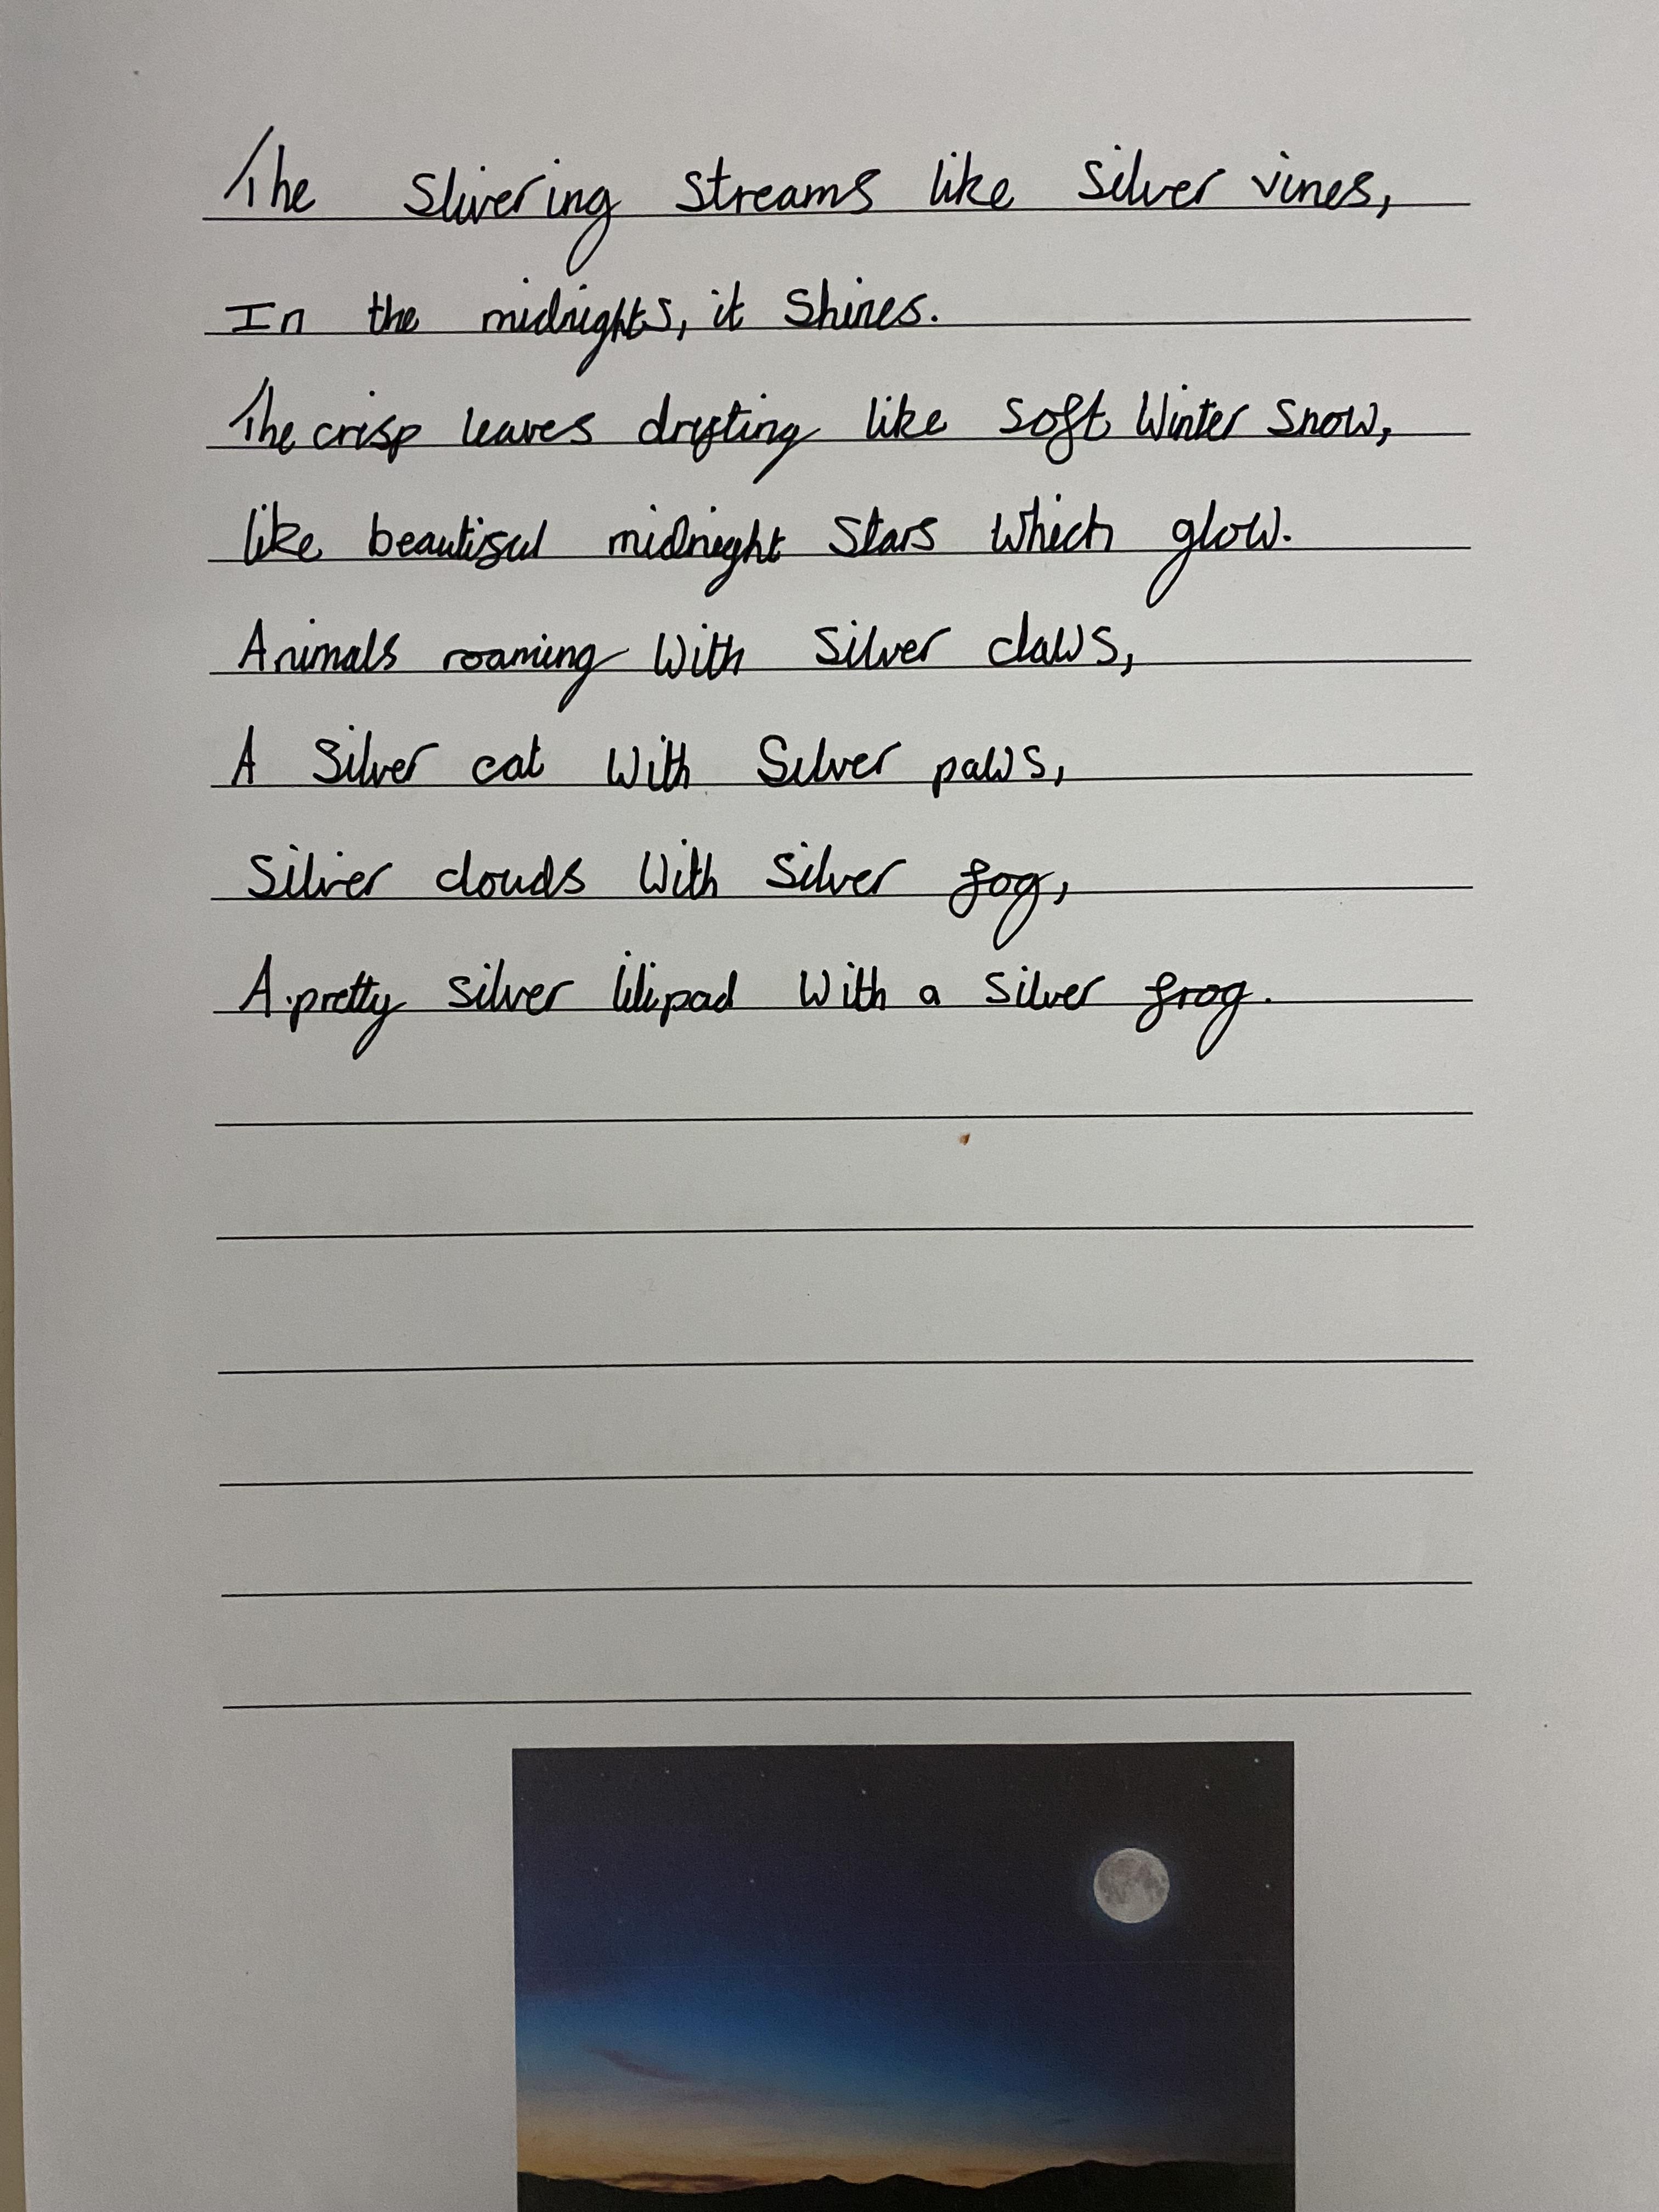 The Slivering streams like silver vines,
In the midnights, it shines.
The crisp leaves drifting like soft Winter snow,
like beautiful midnight stars which glow.
Animals roaming with silver claws,
A silver cat with silver paws,
Silver clouds with silver fog,
A pretty silver lilipad with a silver frog.